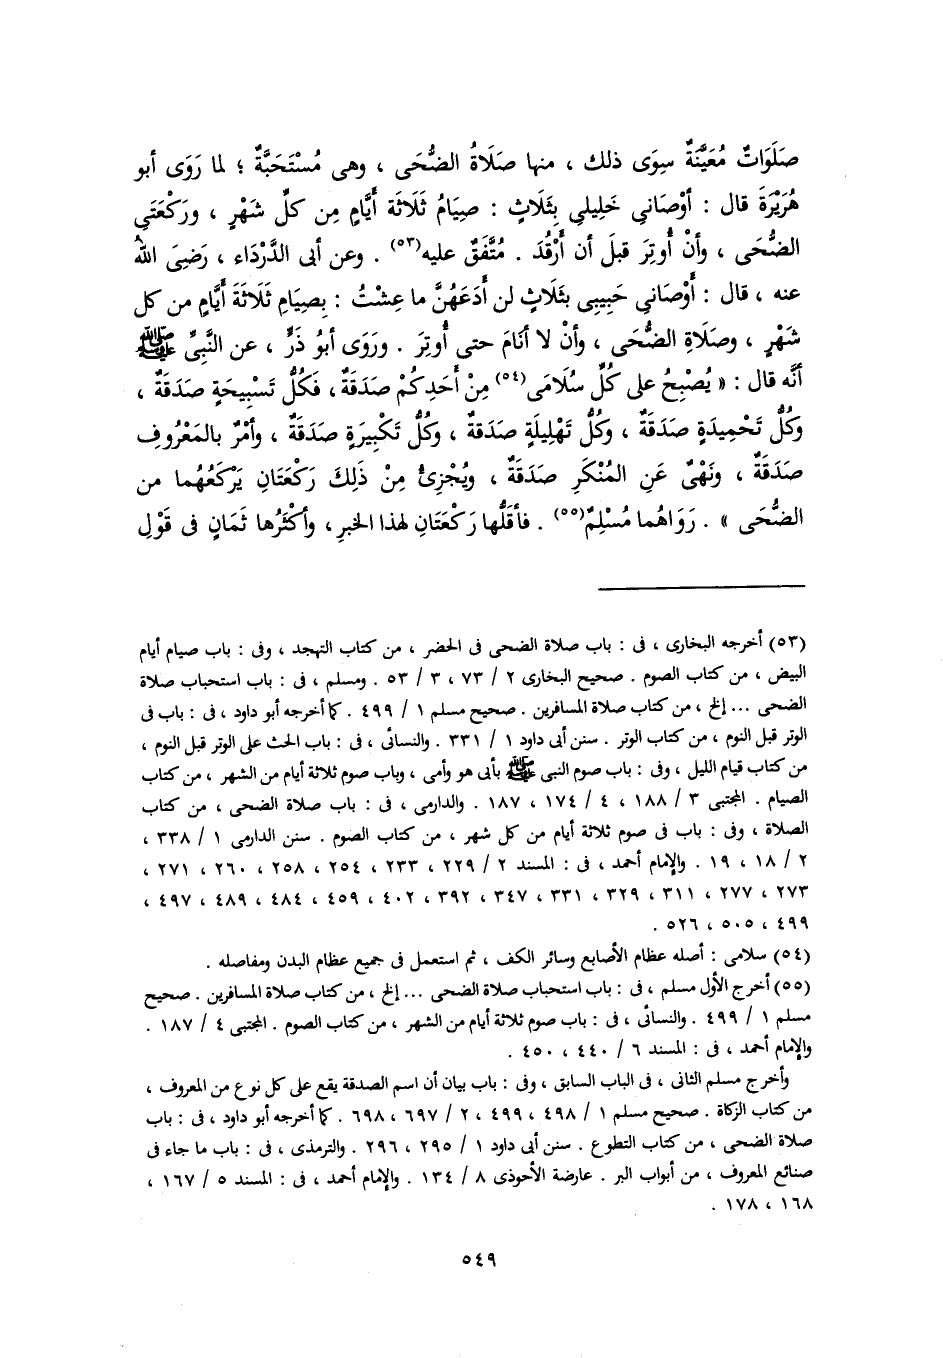 صَلَوَاتٌ مُعَيَّنَةٌ سِوَى ذلك ، منها صَلَاةُ الضُّحَى ، وهى مُسْتَحَبَّةٌ ؛ لما رَوَى أبو
هُرَيْرَةَ قال : أوْصَانِى خَلِيلِى بِثَلَاثٍ : صِيَامُ ثَلَاثَة أيَّامٍ مِن كلِّ شَهْرٍ ، ورَكْعَتَىِ
الضُّحَى ، وأنْ أُوتِرَ قبلَ أن أَرْقُدَ . مُتَّفَقٌ عليه(٥٣) . وعن أبى الدَّرْدَاء ، رَضِىَ اللهُ
عنه ، قال : أوْصَانِى حَبِيبِى بثَلَاثٍ لن أدَعَهُنَّ ما عِشْتُ : بِصِيَامِ ثَلَاثَةَ أيَّامٍ من كل
شَهْرٍ ، وصَلَاةِ الضُّحَى ، وأنْ لا أنَامَ حتى أُوتِرَ . ورَوَى أبو ذَرٍّ ، عن النَّبِىِّ ﷺ
أنَّه قال : « يُصْبِحُ على كُلِّ سُلَامَى(٥٤) مِنْ أَحَدِكُمْ صَدَقَةٌ ، فَكُلُّ تَسْبِيحَةٍ صَدَقَةٌ ،
وكُلُّ تَحْمِيدَةٍ صَدَقَةٌ ، وكُلُّ تَهْلِيلَةٍ صَدَقةٌ ، وكُلُّ تَكْبِيرَةٍ صَدَقَةٌ ، وأمْرٌ بالمَعْرُوفِ
صَدَقَةٌ ، ونَهْىٌ عَنِ المُنْكَرِ صَدَقَةٌ ، ويُجْزِئُ مِنْ ذَلِكَ رَكْعَتَانِ يَرْكَعُهُما من
الضُّحَى » . رَوَاهُما مُسْلِمٌ(٥٥) . فأقَلُّها رَكْعَتَانِ لهذا الخبرِ ، وأكْثَرُها ثَمَانٍ فى قَوْلِ
(٥٣) أخرجه البخارى ، فى : باب صلاة الضحى فى الحضر ، من كتاب التهجد ، وفى : باب صيام أيام
البيض ، من كتاب الصوم . صحيح البخارى ٢ / ٧٣ ، ٣ / ٥٣ . ومسلم ، فى : باب استحباب صلاة
الضحى ... إلخ ، من كتاب صلاة المسافرين . صحيح مسلم ١ / ٤٩٩ . كما أخرجه أبو داود ، فى : باب فى
الوتر قبل النوم ، من كتاب الوتر . سنن أبى داود ١ / ٣٣١ . والنسائى ، فى : باب الحث على الوتر قبل النوم ،
من كتاب قيام الليل ، وفى : باب صوم النبى ﷺ بأبى هو وأمى ، وباب صوم ثلاثة أيام من الشهر ، من كتاب
الصيام . المجتبى ٣ / ١٨٨ ، ٤ / ١٧٤ ، ١٨٧ . والدارمى ، فى : باب صلاة الضحى ، من كتاب
الصلاة ، وفى : باب فى صوم ثلاثة أيام من كل شهر ، من كتاب الصوم . سنن الدارمى ١ / ٣٣٨ ،
٢ / ١٨ ، ١٩ . والإمام أحمد ، فى : المسند ٢ / ٢٢٩ ، ٢٣٣ ، ٢٥٤ ، ٢٥٨ ، ٢٦٠ ، ٢٧١ ،
٢٧٣ ، ٢٧٧ ، ٣١١ ، ٣٢٩ ، ٣٣١ ، ٣٤٧ ، ٣٩٢ ، ٤٠٢ ، ٤٥٩ ، ٤٨٤ ، ٤٨٩ ، ٤٩٧ ،
٤٩٩ ، ٥٠٥ ، ٥٢٦ .
(٥٤) سلامى : أصله عظام الأصابع وسائر الكف ، ثم استعمل فى جميع عظام البدن ومفاصله .
(٥٥) أخرج الأول مسلم ، فى : باب استحباب صلاة الضحى ... إلخ ، من كتاب صلاة المسافرين . صحيح
مسلم ١ / ٤٩٩ . والنسائى ، فى : باب صوم ثلاثة أيام من الشهر ، من كتاب الصوم . المجتبى ٤ / ١٨٧ .
والإمام أحمد ، فى : المسند ٦ / ٤٤٠ ، ٤٥٠ .
وأخرج مسلم الثانى ، فى الباب السابق ، وفى : باب بيان أن اسم الصدقة يقع على كل نوع من المعروف ،
من كتاب الزكاة . صحيح مسلم ١ / ٤٩٨ ، ٤٩٩ ، ٢ / ٦٩٧ ، ٦٩٨ . كما أخرجه أبو داود ، فى : باب
صلاة الضحى ، من كتاب التطوع . سنن أبى داود ١ / ٢٩٥ ، ٢٩٦ . والترمذى ، فى : باب ما جاء فى
صنائع المعروف ، من أبواب البر . عارضة الأحوذى ٨ / ١٣٤ . والإمام أحمد ، فى : المسند ٥ / ١٦٧ ،
١٦٨ ، ١٧٨ .
٥٤٩